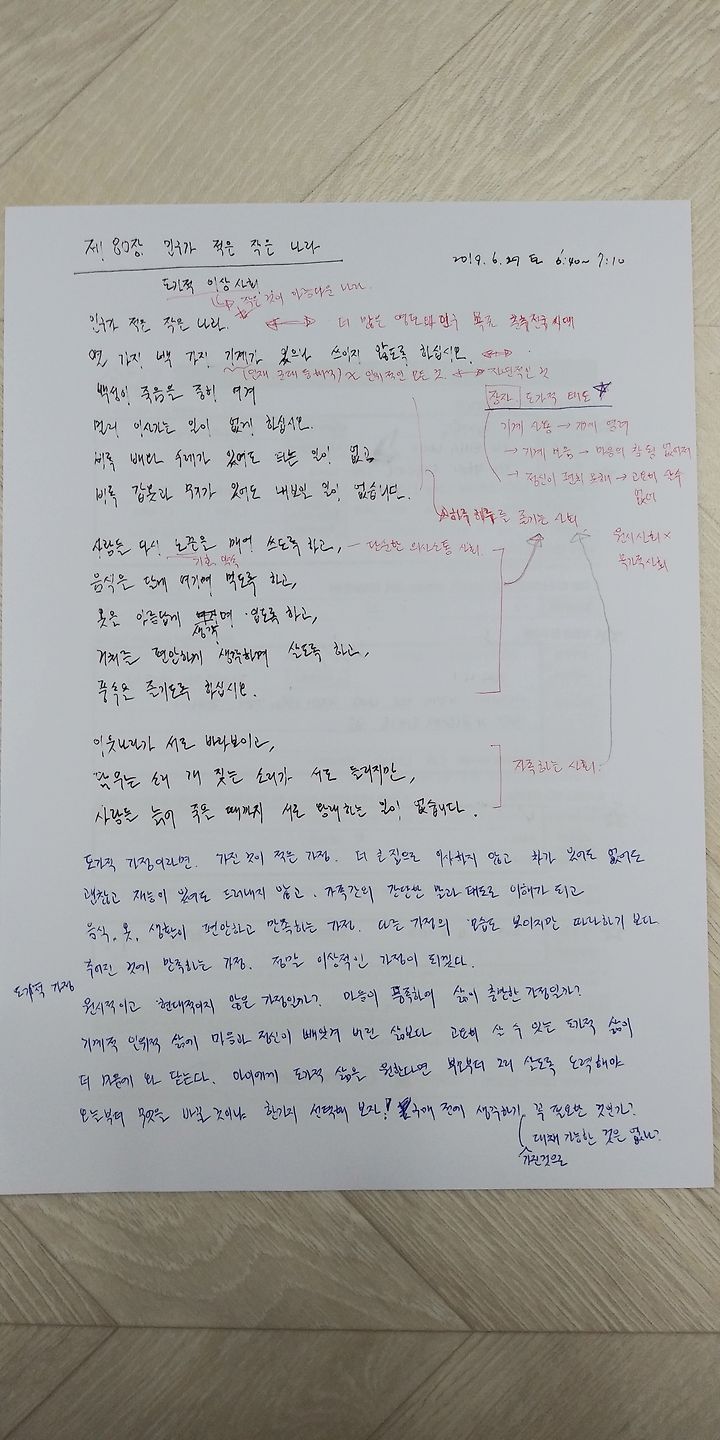 제 80장. 인구가 적은 작은 나라
2019. 6. 29 토 6:40~7:10
도가적 이상사회
작은 것이 아름다운 나라.
인구가 적은 작은 나라. ↔ 더 많은 영토와 인구 목표 춘추전국시대
열 가지 백 가지 기계가 있으나 쓰이지 않도록 하십시오.
인위적인 모든 것 ↔ 자연적인 것
백성이 죽음을 중히 여겨
장자 도가적 태도
멀리 이사가는 일이 없게 하십시오.
기계 사용 → 기계 염려
→ 기계 마음 → 마음의 참됨 없어져
비록 배나 수레가 있어도 타는 일이 없고
→ 정신이 편치 못해 → 고요히 살 수 없어
비록 갑옷과 무기가 있어도 내보일 일이 없습니다.
하루 하루를 즐기는 사회
원시사회 X
사람들 다시 노끈을 매어 쓰도록 하고, — 단순한 의사소통 사회.
음식을 달게 여기며 먹도록 하고,
옷은 아름답게 생각며 입도록 하고,
거처를 편안하게 생각하며 살도록 하고,
풍속을 즐기도록 하십시오.
이웃나라가 서로 바라보이고,
닭 우는 소리 개 짖는 소리가 서로 들리지만,
자족하는 사회.
사람들 늙어 죽을 때까지 서로 왕래하는 일이 없습니다.
도가적 가정이라면. 가진 것이 적은 가정. 더 큰 집으로 이사하지 않고 차가 있어도 없어도
괜찮고 재능이 있어도 드러내지 않고. 가족간의 간단한 말과 태도로 이해가 되고
음식, 옷, 생활이 편안하고 만족하는 가정. 다른 가정의 모습도 보이지만 따라하기 보다
주어진 것에 만족하는 가정. 정말 이상적인 가정이 되겠다.
도가적 가정
원시적이고 현대적이지 않은 가정일까? 마음이 풍족하여 삶이 충만한 가정일까?
기계적 인위적 삶에 마음과 정신이 빼앗겨 버린 삶보다 고요히 살 수 있는 도가적 삶이
더 마음에 와 닿는다. 아이에게 도가적 삶을 원한다면 부모부터 그리 살도록 노력해야
오늘부터 무엇을 바꿀 것이냐 한가지 선택해 보자! 구매 전에 생각하기. 꼭 필요한 것인가?
대체 가능한 것은 없나?
가진것으로